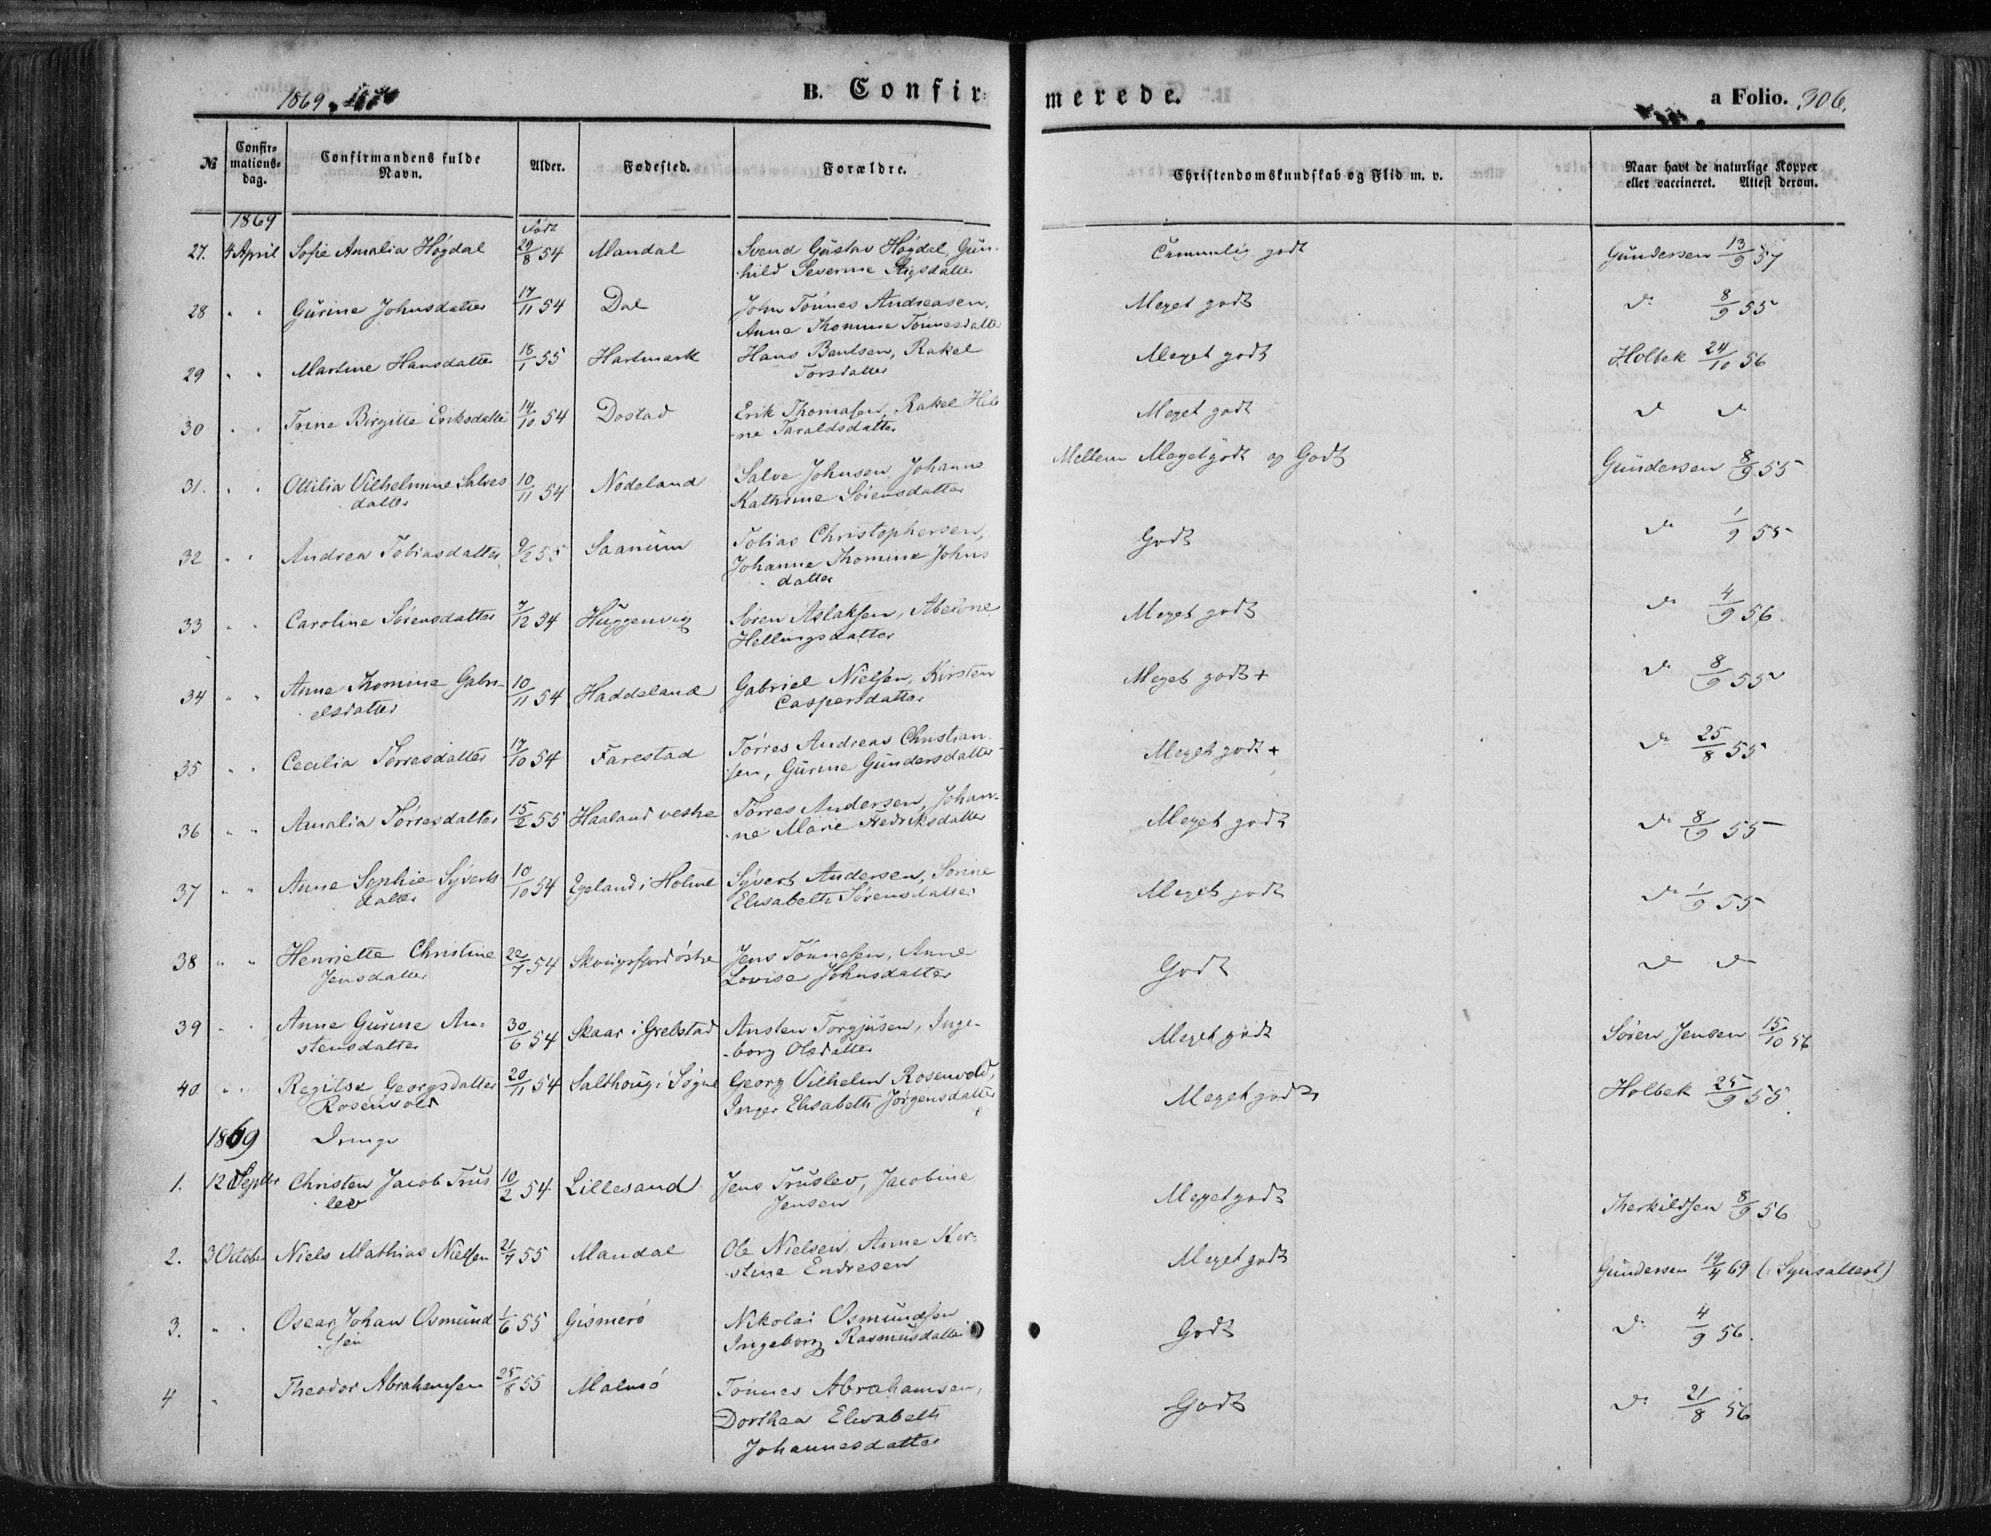 1869.
B. Confirmerede.
a Folio. 306.
№ Confirmations-dag. Confirmandens fulde Navn. Alder. Fødested. Forældre. Christendomskundskab og Flid m. v. Naar havt de naturlige Kopper eller vaccineret. Attest derom.
1869 født
27. 4 April Sofie Amalia Høgdal 29/8 54 Mandal Svend Gustav Høgdal, Gun- Gundersen 13/9 57
hild Severine Stigsdatter
28 " " Gurine Johnsdatter 17/11 54 Dal John Tønnes Andreasen, Meget godt do 8/9 55
Anne Thomine Tønnesdatter
29 " " Martine Hansdatter 18/1 55 Hartmark Hans Bentsen, Rakel Meget godt Holbek 24/10 56
Torsdatter
30 " " Trine Birgitte Eriksdatter 14/10 54 Dostad Erik Thomasen, Rakel Hele Meget godt do do
-ne Taraldsdatter
31. " " Ottilia Vilhelmine Salves 10/11 54 Nødeland Salve Johnsen Johanne Mellem Meget godt og Godt Gundersen 8/9 55
datter Kathrine Sørensdatter
32 " " Andrea Tobiasdatter 9/2 55 Saanum Tobias Christophersen, Godt do 1/9 55
Johanne Thomine Johns
datter
33 " " Caroline Sørensdatter 7/12 54 Huggenvig Søren Aslaksen, Abeline Meget godt do 4/9 56.
Hellingsdatter
34 " " Anne Thomine Gabri- 10/11 54 Haddeland Gabriel Nielsen, Kirsten Meget godt + do 8/9 55
elsdatter Caspersdatter
35 " " Cecilia Tørresdatter 17/10 54 Farestad Tørres Andreas Christian- Meget godt + do 25/8 55
sen, Gurine Gundersdatter
36 " " Amalia Tørresdatter 15/2 55 Haaland vestre Tørres Andersen, Johan- Meget godt do 8/9 55
-ne Marie Fredriksdatter
37 " " Anne Sophie Syverts 10/10 54 Egeland i Holme Syvert Andersen, Sørine Meget godt do 1/9 55
datter Elisabeth Sørensdatter
38 " " Henriette Christine 22/7 54 Skougsfjord østre Jens Tønnesen, Anne Godt do do
Jensdatter Lovise Johnsdatter
39 " " Anne Gurine An- 30/6 54 Skaar i Grelstad Ansten Torgjusen, Inge- Meget godt Søren Jensen 15/10 56
stensdatter -borg Olsdatter
40 " " Regitse Georgsdatter 20/11 54 Salthoug i Søgne Georg Vilhelm Rosenvold, Meget godt Holbek 25/9 55.
Rosenvold Inger Elisabeth Jørgensdatter
1869 Drenge
1. 12 Septbr Christen Jacob Trus 10/2 54 Lillesand Jens Truslev, Jacobine Meget godt Therkildsen 8/9 56
lev Jensen
2. 3 Octobr Niels Mathias Nielsen 21/7 55 Mandal Ole Nielsen, Anne Kir- Meget godt Gundersen 19/4 69 (Synsattest)
stine Endresen
3. " " Oscar Johan Osmund 1/6 55 Gismerø Nikolai Osmundsen Godt do 4/9 56.
sen Ingeborg Rasmusdatter
4 " Theodor Abrahamsen 25/8 55 Malmø Tønnes Abrahamsen, Godt do 21/8 56
Dorthea Elisabeth
Johannesdatter